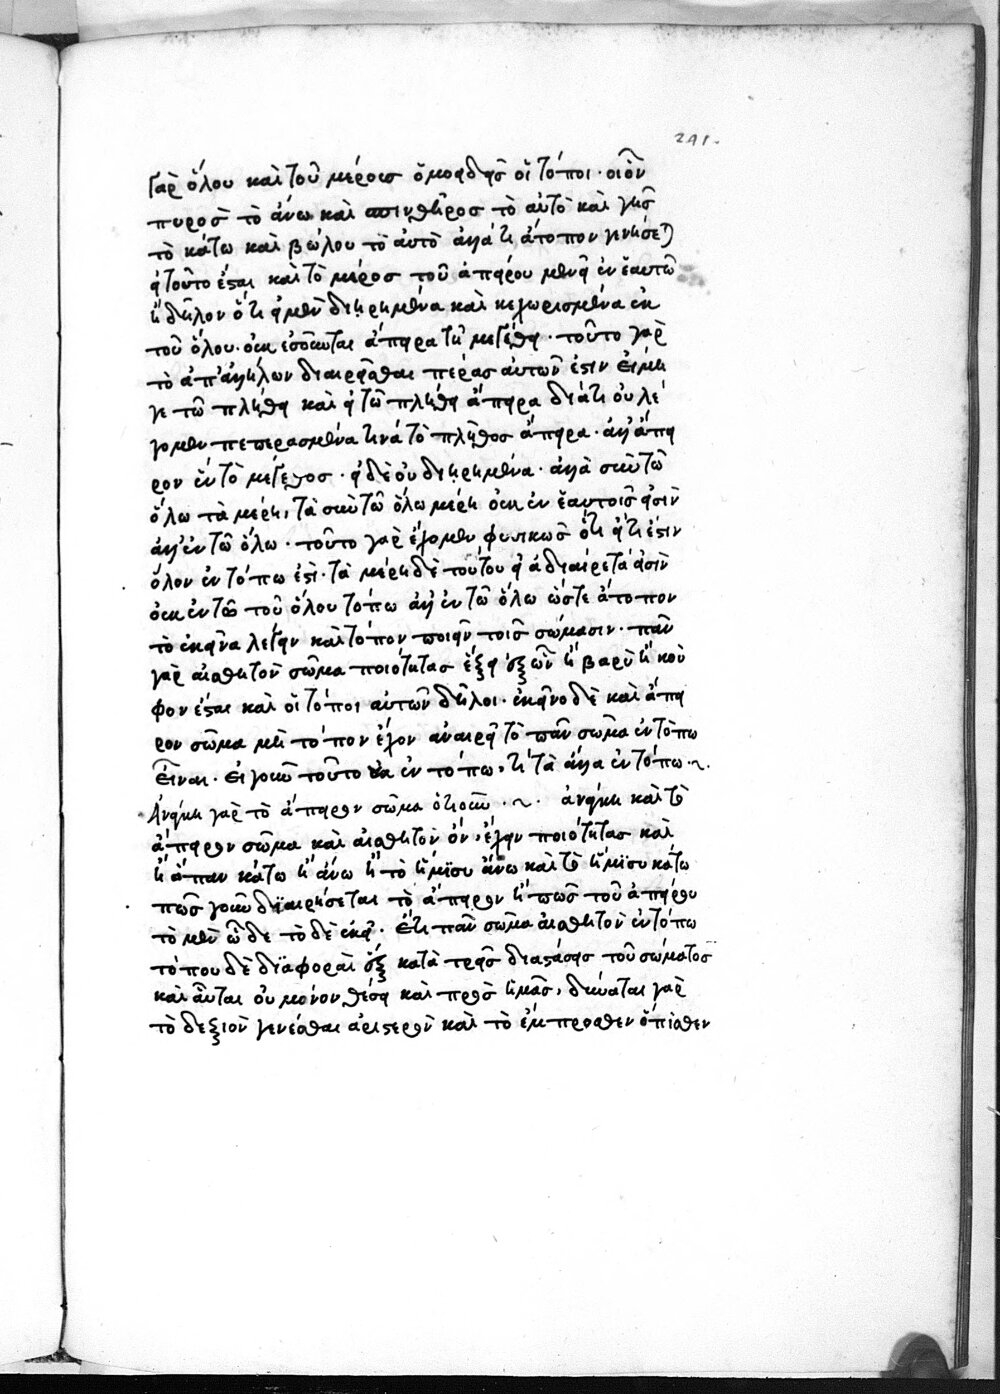 291.
γὰρ ὅλου καὶ τοῦ μέρους ὁμοειδεῖς οἱ τόποι· οἷον
πυρὸς τὸ ἄνω καὶ σπινθῆρος τὸ αὐτὸ καὶ γῆς
τὸ κάτω καὶ βώλου τὸ αὐτὸ ἀλλά τι ἄτοπον γενήσεται
εἰ τοῦτο ἔσται καὶ τὸ μέρος τοῦ ἀπείρου μένει ἐν ἑαυτῶ
ἢ δῆλον ὅτι εἰ μὲν διηρημένα καὶ κεχωρισμένα ἐκ
τοῦ ὅλου· οὐκ ἄπειρα τῆ μεγέθει· τοῦτο γὰρ
τὸ ἀπ' ἀλλήλων διαιρεῖσθαι πέρας αὐτῶν ἐστιν εἰ μή
γε τῶ πλήθει καὶ εἰ τῶ πλήθει ἄπειρα διάτι οὐ λέ
γομεν πεπερασμένα τινὰ τὸ πλῆθος ἄπειρα· ἀλλ' ἄπει
ρον ἓν τὸ μέγεθος· εἰ δὲ οὐ διηρημένα· ἀλλὰ σὺν τῶ
ὅλω τὰ μέρη, τὰ σὺν τῶ ὅλω μέρη οὐκ ἐν ἑαυτοῖς εἰσὶν
ἀλλ' ἐν τῶ ὅλω· τοῦτο γὰρ ἔχομεν φυσικῶς ὅτι εἴ τι ἐστιν
ὅλον ἐν τόπω ἐστὶ· τὰ μέρη δὲ τούτου εἰ ἀδιαίρετά εἰσὶν
οὐκ ἐν τῶ τοῦ ὅλου τόπω ἀλλ' ἐν τῶ ὅλω ὥστε ἄτοπον
τὸ ἐκεῖνα λέγειν καὶ τόπον ποιεῖν τοῖς σώμασιν· πᾶν
γὰρ αἰσθητὸν σῶμα ποιότητας ἕξει ἐξ ὧν ἢ βαρὺ ἢ κοῦ
φον ἔσται καὶ οἱ τόποι αὐτῶν δῆλοι· ἐκεῖνο δὲ καὶ ἄπει
ρον σῶμα μὴ τόπον ἔχον ἀναιρεῖ τὸ πᾶν σῶμα ἐν τόπω
εἶναι· εἰ γοῦν τοῦτο ἐν τόπω, τί τὰ ἄλλα ἐν τόπω ·~.
Ἀνάγκη γὰρ τὸ ἄπειρον σῶμα ὁτιοῦν ·~· ἀνάγκη καὶ τὸ
ἄπειρον σῶμα καὶ αἰσθητὸν ὂν, ἔχειν ποιότητας καὶ
ἢ ἅπαν κάτω ἢ ἄνω ἢ τὸ ἥμισυ ἄνω καὶ τὸ ἥμισυ κάτω
πῶς γοῦν διαιρήσεται τὸ ἄπειρον ἢ πῶς τοῦ ἀπείρου
τὸ μὲν ὧδε τὸ δὲ ἐκεῖ· ἔτι πᾶν σῶμα αἰσθητὸν ἐν τόπω
τόπου δὲ διαφοραὶ ἓξ κατὰ τρεῖς διαστάσεις τοῦ σώματος
καὶ αὗται οὐ μόνον θέσει καὶ πρὸς ἡμᾶς, δύναται γὰρ
τὸ δεξιὸν γενέσθαι ἀριστερὸν καὶ τὸ ἔμπροσθεν ὄπισθεν